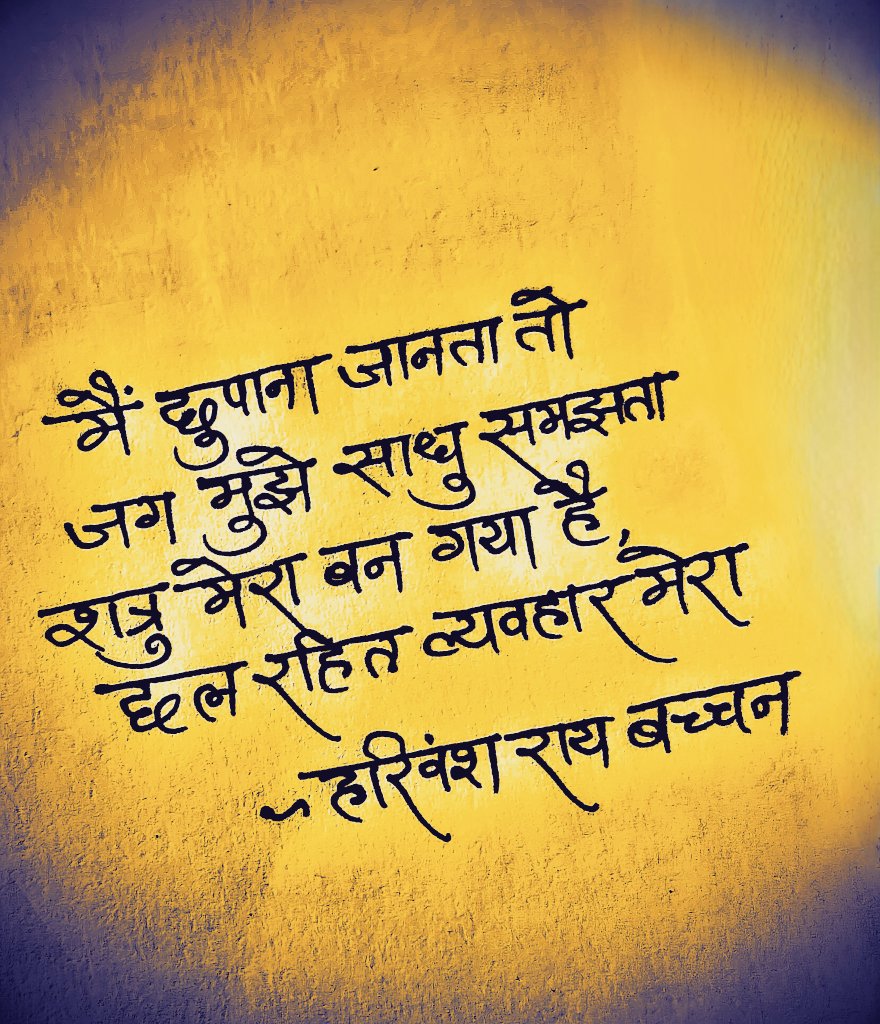 मैं छुपाना जानता तो
जग मुझे साधु समझता
शत्रु मेरा बन गया है,
छल रहित व्यवहार मेरा
~ हरिवंश राय बच्चन